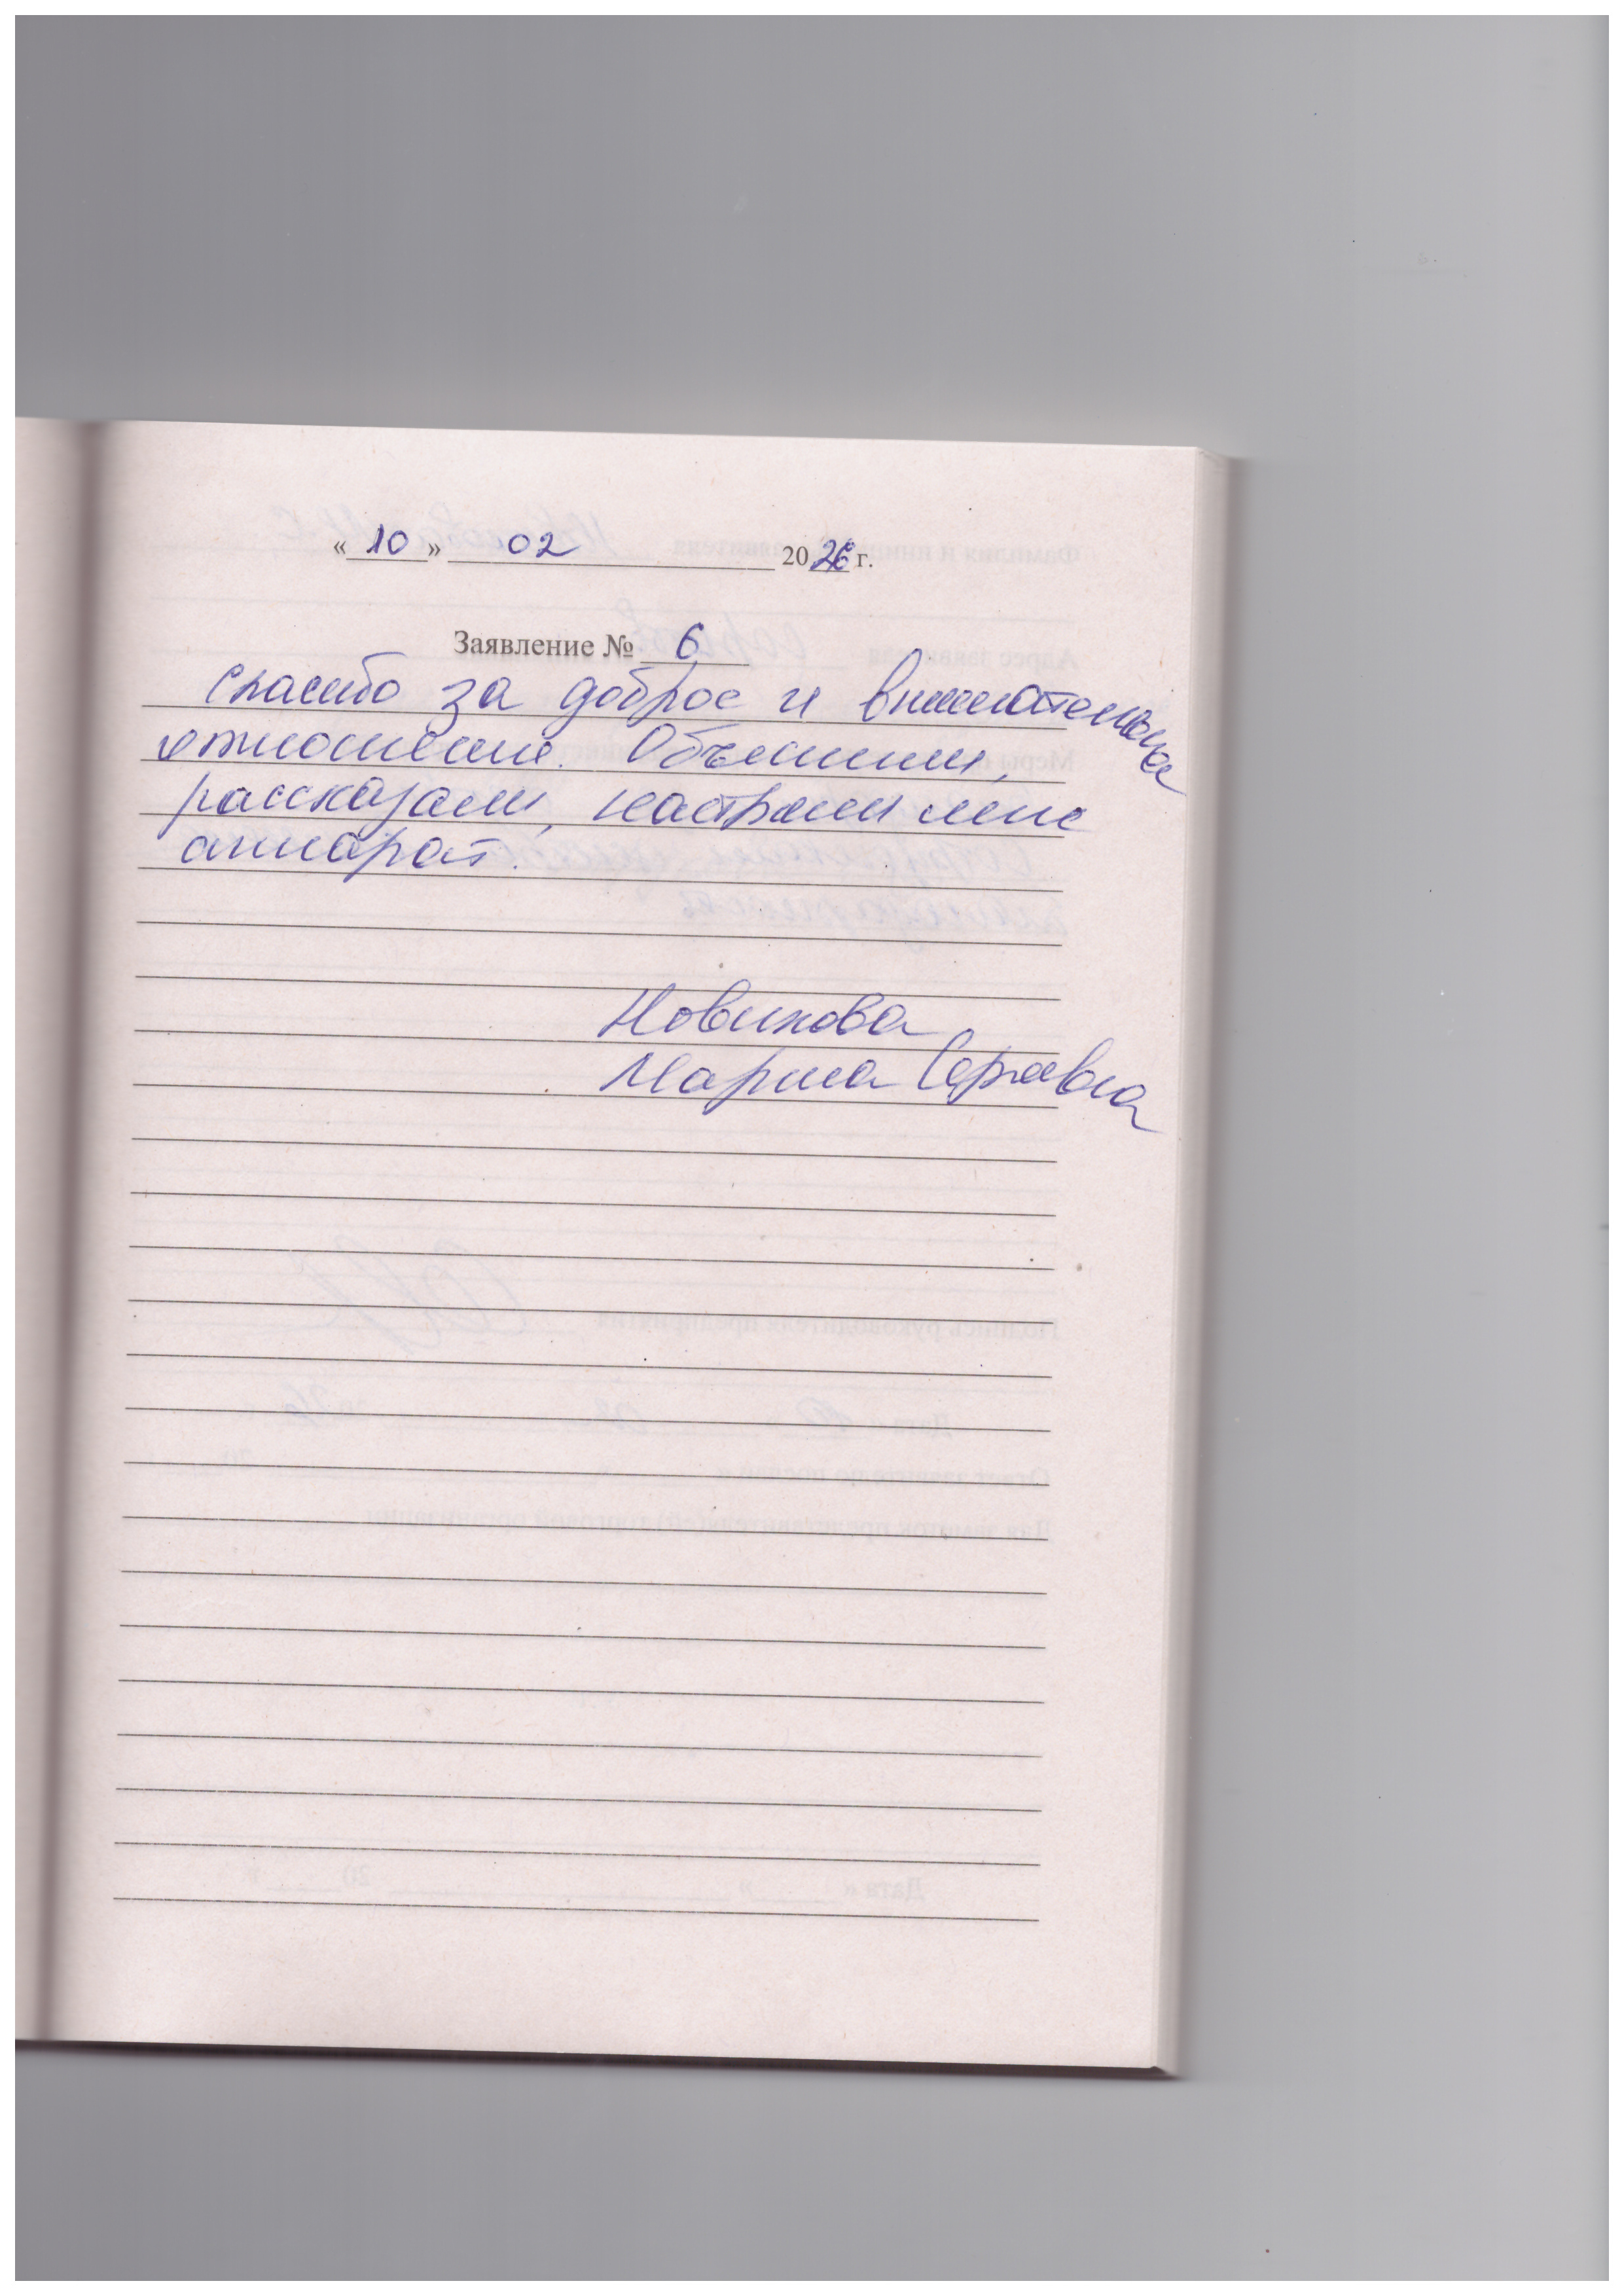 « 10 » 02 2026 г.
Заявление № 6
Спасибо за доброе и внимательное
отношение. Объяснили,
рассказали, настроили мне
аппарат.
Новикова
Марина Сергеевна